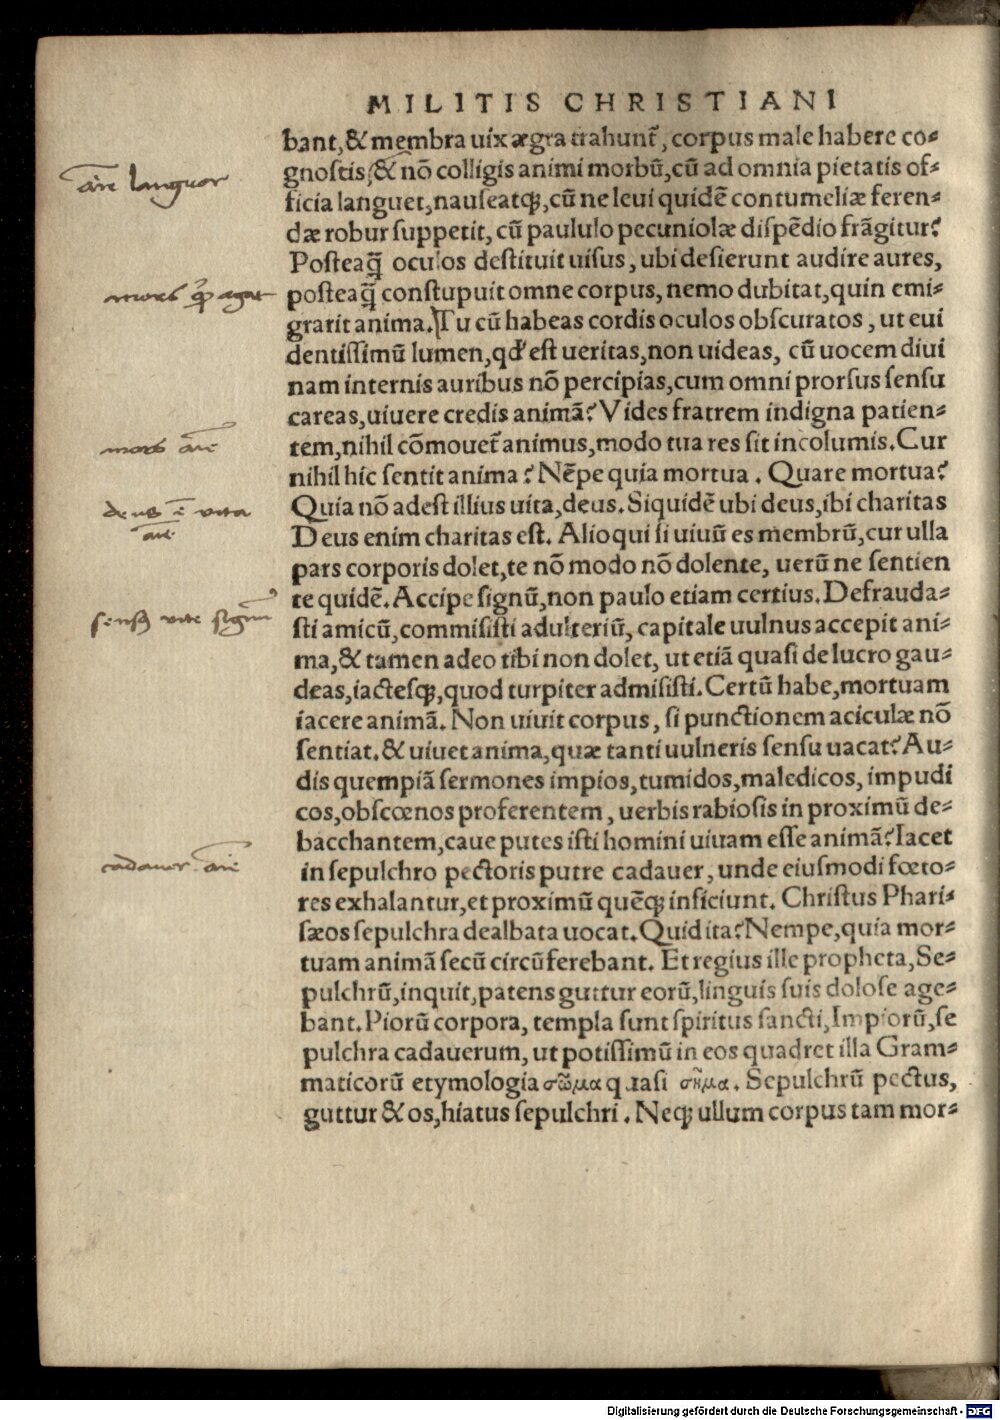 MILITIS CHRISTIANI
bant,& membra uix ægra trahunt᷑, corpus male habere co⸗
gnoſtis,& nõ colligis animi morbũ,cũ ad omnia pietatis of⸗
ficia languet,nauſeatq;,cũ ne leui quidẽ contumeliæ feren⸗
dæ robur ſuppetit, cũ paululo pecuniolæ diſpẽdio frãgitur?
Poſteaq̃ oculos deſtituit uiſus, ubi deſierunt audire aures,
poſteaq̃ conſtupuit omne corpus, nemo dubitat,quin emi⸗
grarit anima. Tu cũ habeas cordis oculos obſcuratos, ut eui
dentiſſimũ lumen,qd' eſt ueritas,non uideas, cũ uocem diui
nam internis auribus nõ percipias,cum omni prorſus ſenſu
careas,uiuere credis animã? Vides fratrem indigna patien⸗
tem,nihil cõmouet᷑ animus,modo tua res ſit incolumis.Cur
nihil hic ſentit anima? Nẽpe quia mortua. Quare mortua?
Quia nõ adeſt illius uita,deus.Siquidẽ ubi deus,ibi charitas
Deus enim charitas eſt. Alioqui ſi uiuũ es membrũ,cur ulla
pars corporis dolet,te nõ modo nõ dolente, uerũ ne ſentien
te quidẽ.Accipe ſignũ,non paulo etiam certius.Defrauda⸗
ſti amicũ,commiſiſti adulteriũ, capitale uulnus accepit ani⸗
ma,& tamen adeo tibi non dolet, ut etiã quaſi de lucro gau⸗
deas,iacteſq;,quod turpiter admiſiſti.Certũ habe,mortuam
iacere animã. Non uiuit corpus, ſi punctionem aciculæ nõ
ſentiat.& uiuet anima,quæ tanti uulneris ſenſu uacat? Au⸗
dis quempiã ſermones impios,tumidos,maledicos, impudi
cos,obſcœnos proferentem, uerbis rabioſis in proximũ de⸗
bacchantem,caue putes iſti homini uiuam eſſe animã? Iacet
in ſepulchro pectoris putre cadauer, unde eiuſmodi fœto⸗
res exhalantur,et proximũ quẽq; inficiunt. Chriſtus Phari⸗
ſæos ſepulchra dealbata uocat.Quid ita? Nempe,quia mor⸗
tuam animã ſecũ circũferebant. Et regius ille propheta,Se⸗
pulchrũ,inquit,patens guttur eorũ,linguis ſuis doloſe age⸗
bant.Piorũ corpora, templa ſunt ſpiritus ſancti,Impiorũ,ſe
pulchra cadauerum, ut potiſſimũ in eos quadret illa Gram⸗
maticorũ etymologia σῶμα quaſi σῆμα. Sepulchrũ pectus,
guttur & os,hiatus ſepulchri. Neq; ullum corpus tam mor⸗
aĩe languor
mors aĩe
deus ẽ vita
aĩe
sensus vite signũ
cadauer aĩe
Digitalisierung gefördert durch die Deutsche Forschungsgemeinschaft - DFG